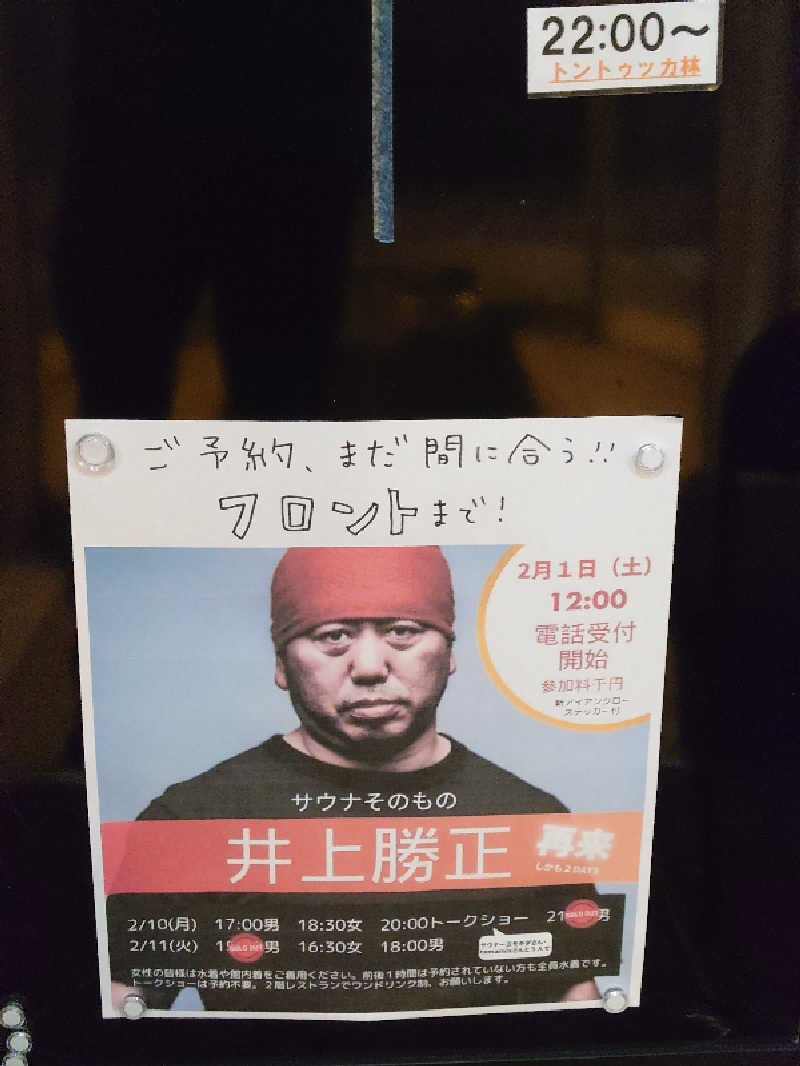 22:00〜
トントゥッカ林
ご予約、まだ間に合う!!
フロントまで!
2月1日（土）
12:00
電話受付
開始
参加料千円
新アイアンクロー
ステッカー付
サウナそのもの
井上勝正
再来
しかも2DAYS
2/10(月) 17:00男 18:30女 20:00トークショー 21 SOLD OUT 男
2/11(火) 1 SOLD OUT 男 16:30女 18:00男
女性の皆様は水着や館内着をご着用ください。前後1時間は予約されていない方も全員水着です。
トークショーは予約不要。2階レストランでワンドリンク制、お願いします。